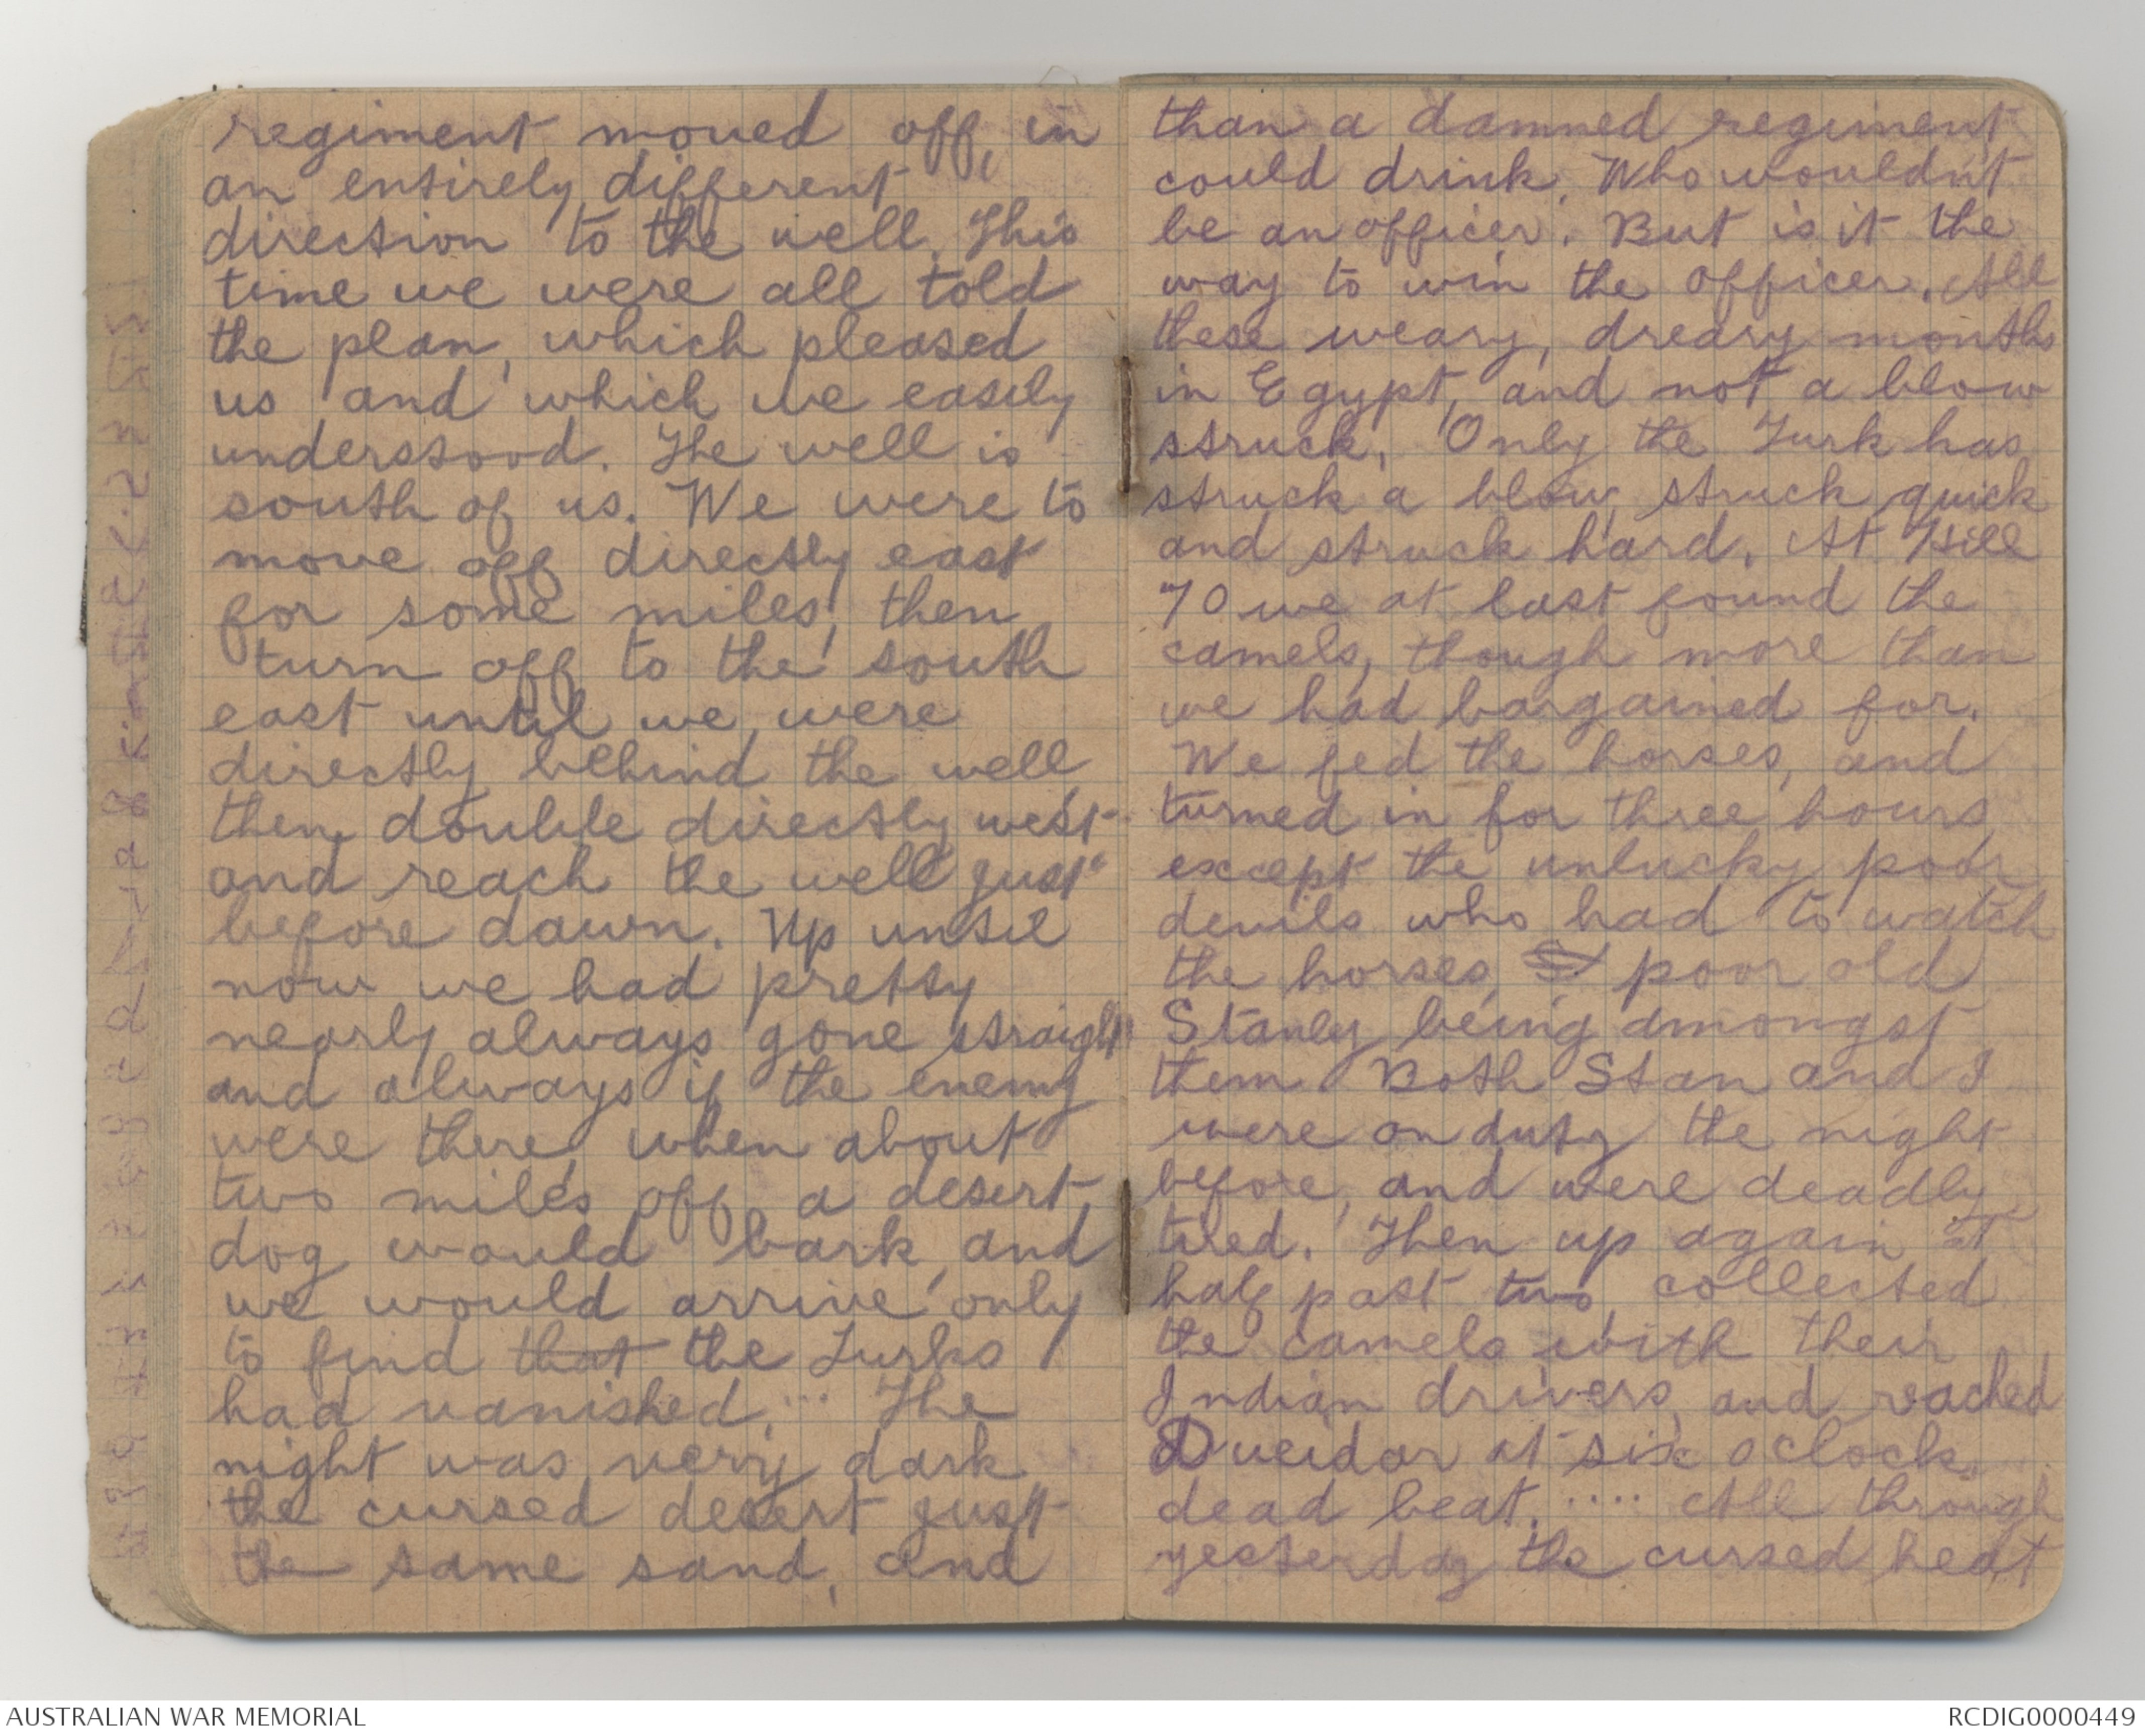 regiment moved off, in
an entirely different
direction to the well. This
time we were all told
the plan, which pleased
us and which we easily
understood. The well is
south of us. We were to
move off directly east
for some miles, then
turn off to the south
east until we were
directly behind the well,
then double directly west
and reach the well just
before dawn. Up until
now we had pretty
nearly always gone straight
and always if the enemy
were there, when about
two miles off a desert
dog would bark, and
we would arrive only
to find that the Turks
had vanished. ... The
night was very dark
the cursed desert just
the same sand, and
than a damned regiment
could drink. Who wouldn't
be an officer. But is it the
way to win the officer. All
these weary, dreary months
in Egypt, and not a blow
struck. Only the Turk has
struck a blow, struck quick
and struck hard. At Hill
70 we at last found the
camels, though more than
we had bargained for.
We fed the horses, and
turned in for three hours
except the unlucky poor
devils who had to watch
the horses, poor old
Stanley being amongst
them Both Stan and I
were on duty the night
before, and were deadly
tired. Then up again at
half past two, collected
the camels with their
Indian drivers, and reached
Dueidar at six oclock,
dead beat. .... All through
yesterday the cursed heat
AUSTRALIAN WAR MEMORIAL
RCDIG0000449